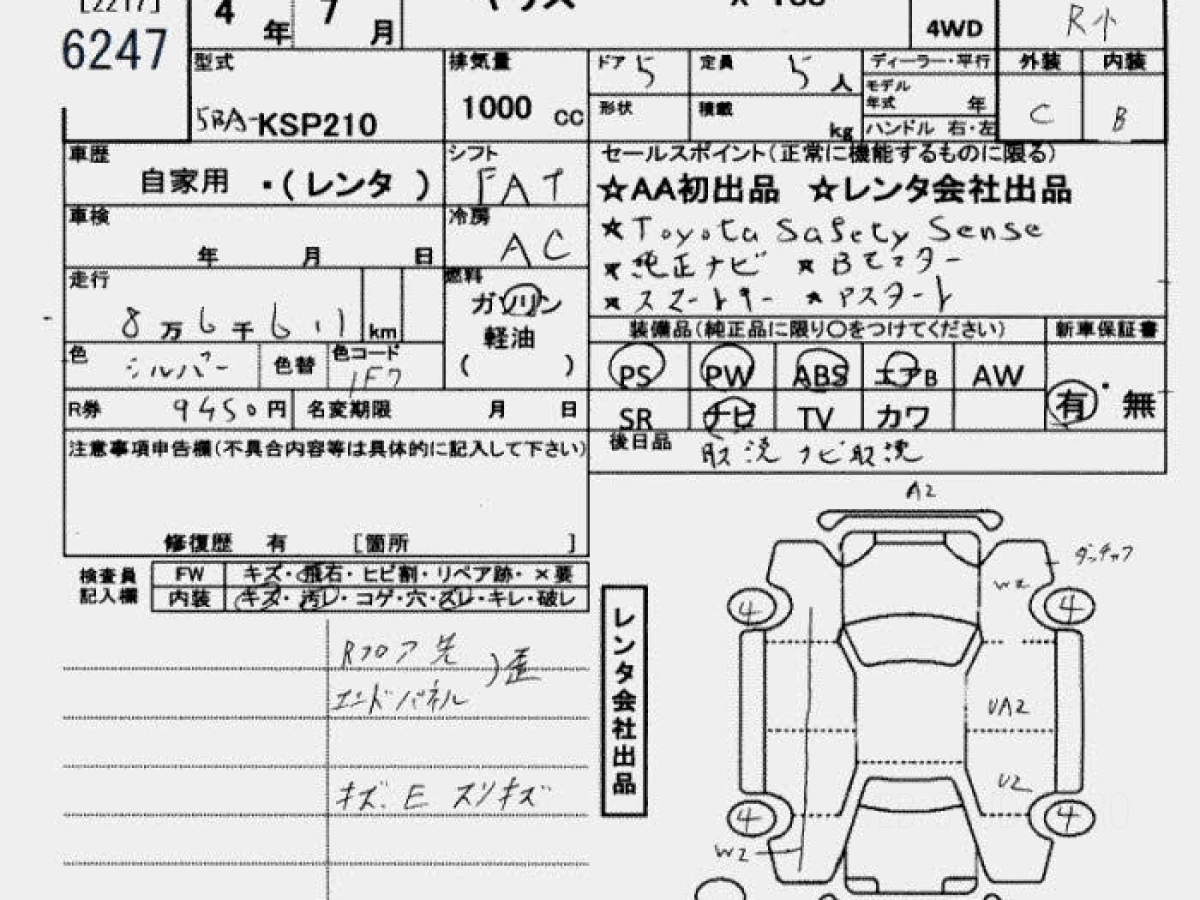 [2217]
6247
4 年 7 月
ヤリス
4WD
R小
型式
5BA-KSP210
排気量
1000 cc
ドア 5
定員 5 人
形状
積載 kg
ディーラー・平行
モデル年式 年
ハンドル 右・左
外装 内装
C B
車歴
自家用 ・(レンタ )
シフト
FAT
セールスポイント(正常に機能するものに限る)
☆AA初出品 ☆レンタ会社出品
★Toyota Safety Sense
★純正ナビ ★Bモニター
★スマートキー ★Pスタート
車検
年 月 日
冷房
AC
走行
8万6千611 km
燃料
ガソリン
軽油
( )
色
シルバー
色替
色コード
1F7
装備品(純正品に限り〇をつけてください)
新車保証書
PS PW ABS エアB AW
有・無
SR ナビ TV カワ
R券 9450円
名変期限 月 日
後日品
取説 ナビ取説
注意事項申告欄(不具合内容等は具体的に記入して下さい)
修復歴 有 [箇所 ]
検査員
記入欄
FW キズ・飛石・ヒビ割・リペア跡・×要
内装 キズ・汚レ・コゲ・穴・スレ・キレ・破レ
Rフロア先
エンドパネル
)歪
キズ.E スリキズ
レンタ会社出品
A2
W2
4 4
UA2
U2
4 4
W2